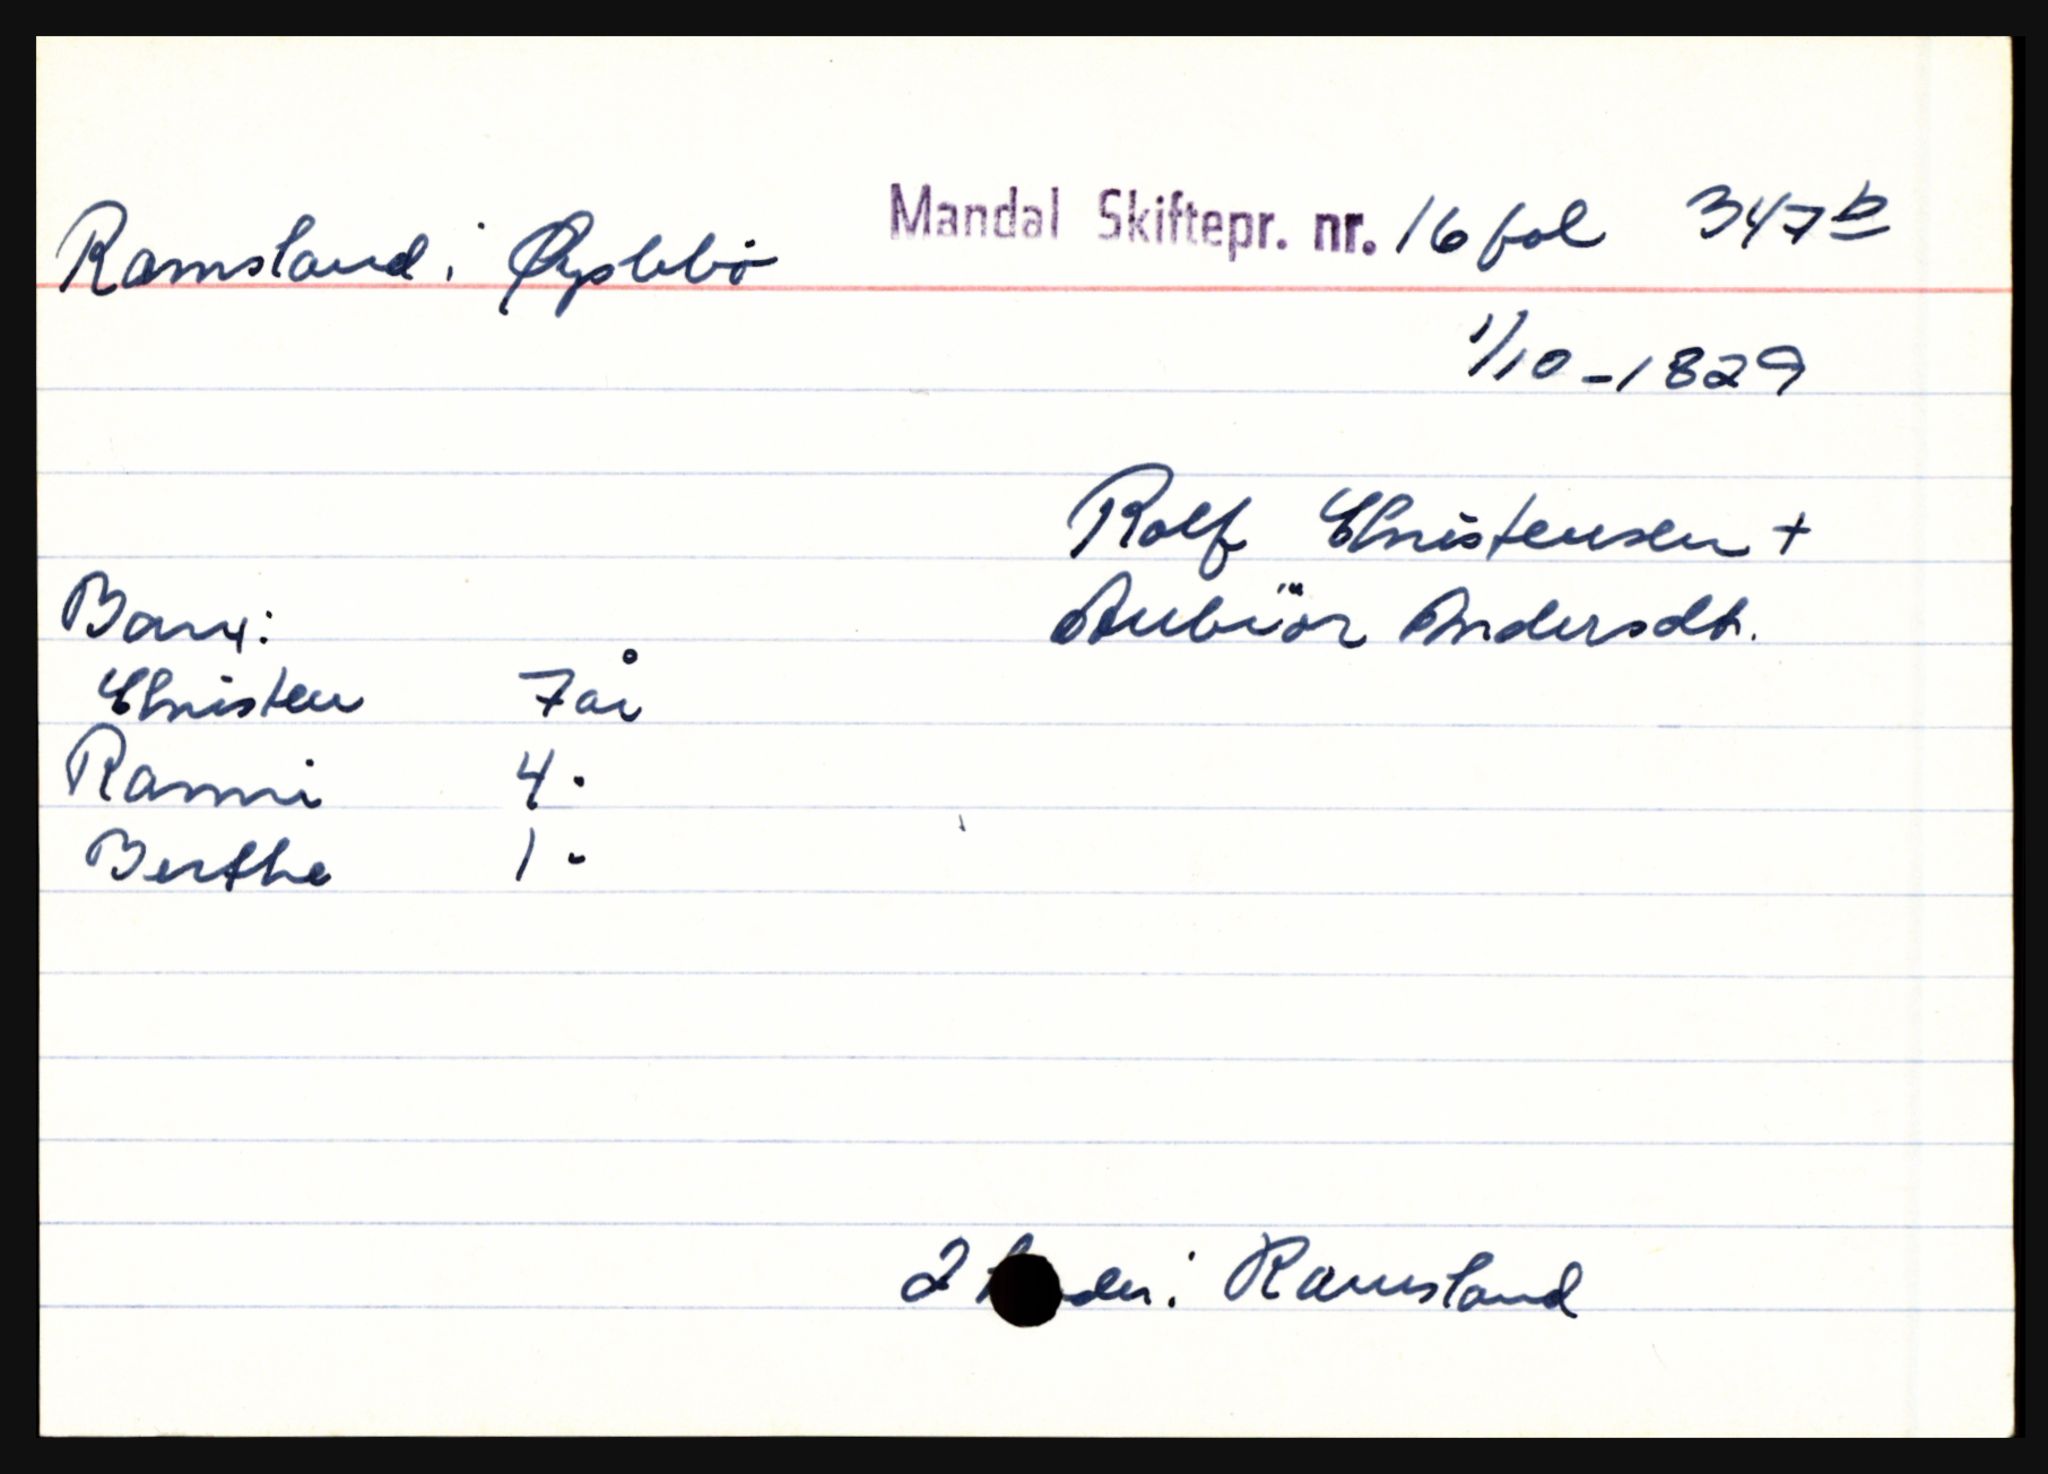 Ramsland i Øyslebö Mandal Skiftepr. nr. 16 fol 347b
1/10 - 1829
Rolf Christensen +
Aubiör Andersdt.
Barn:
Christen 7 år
Ranni 4 "
Berthe 1 "
2 i Ramsland